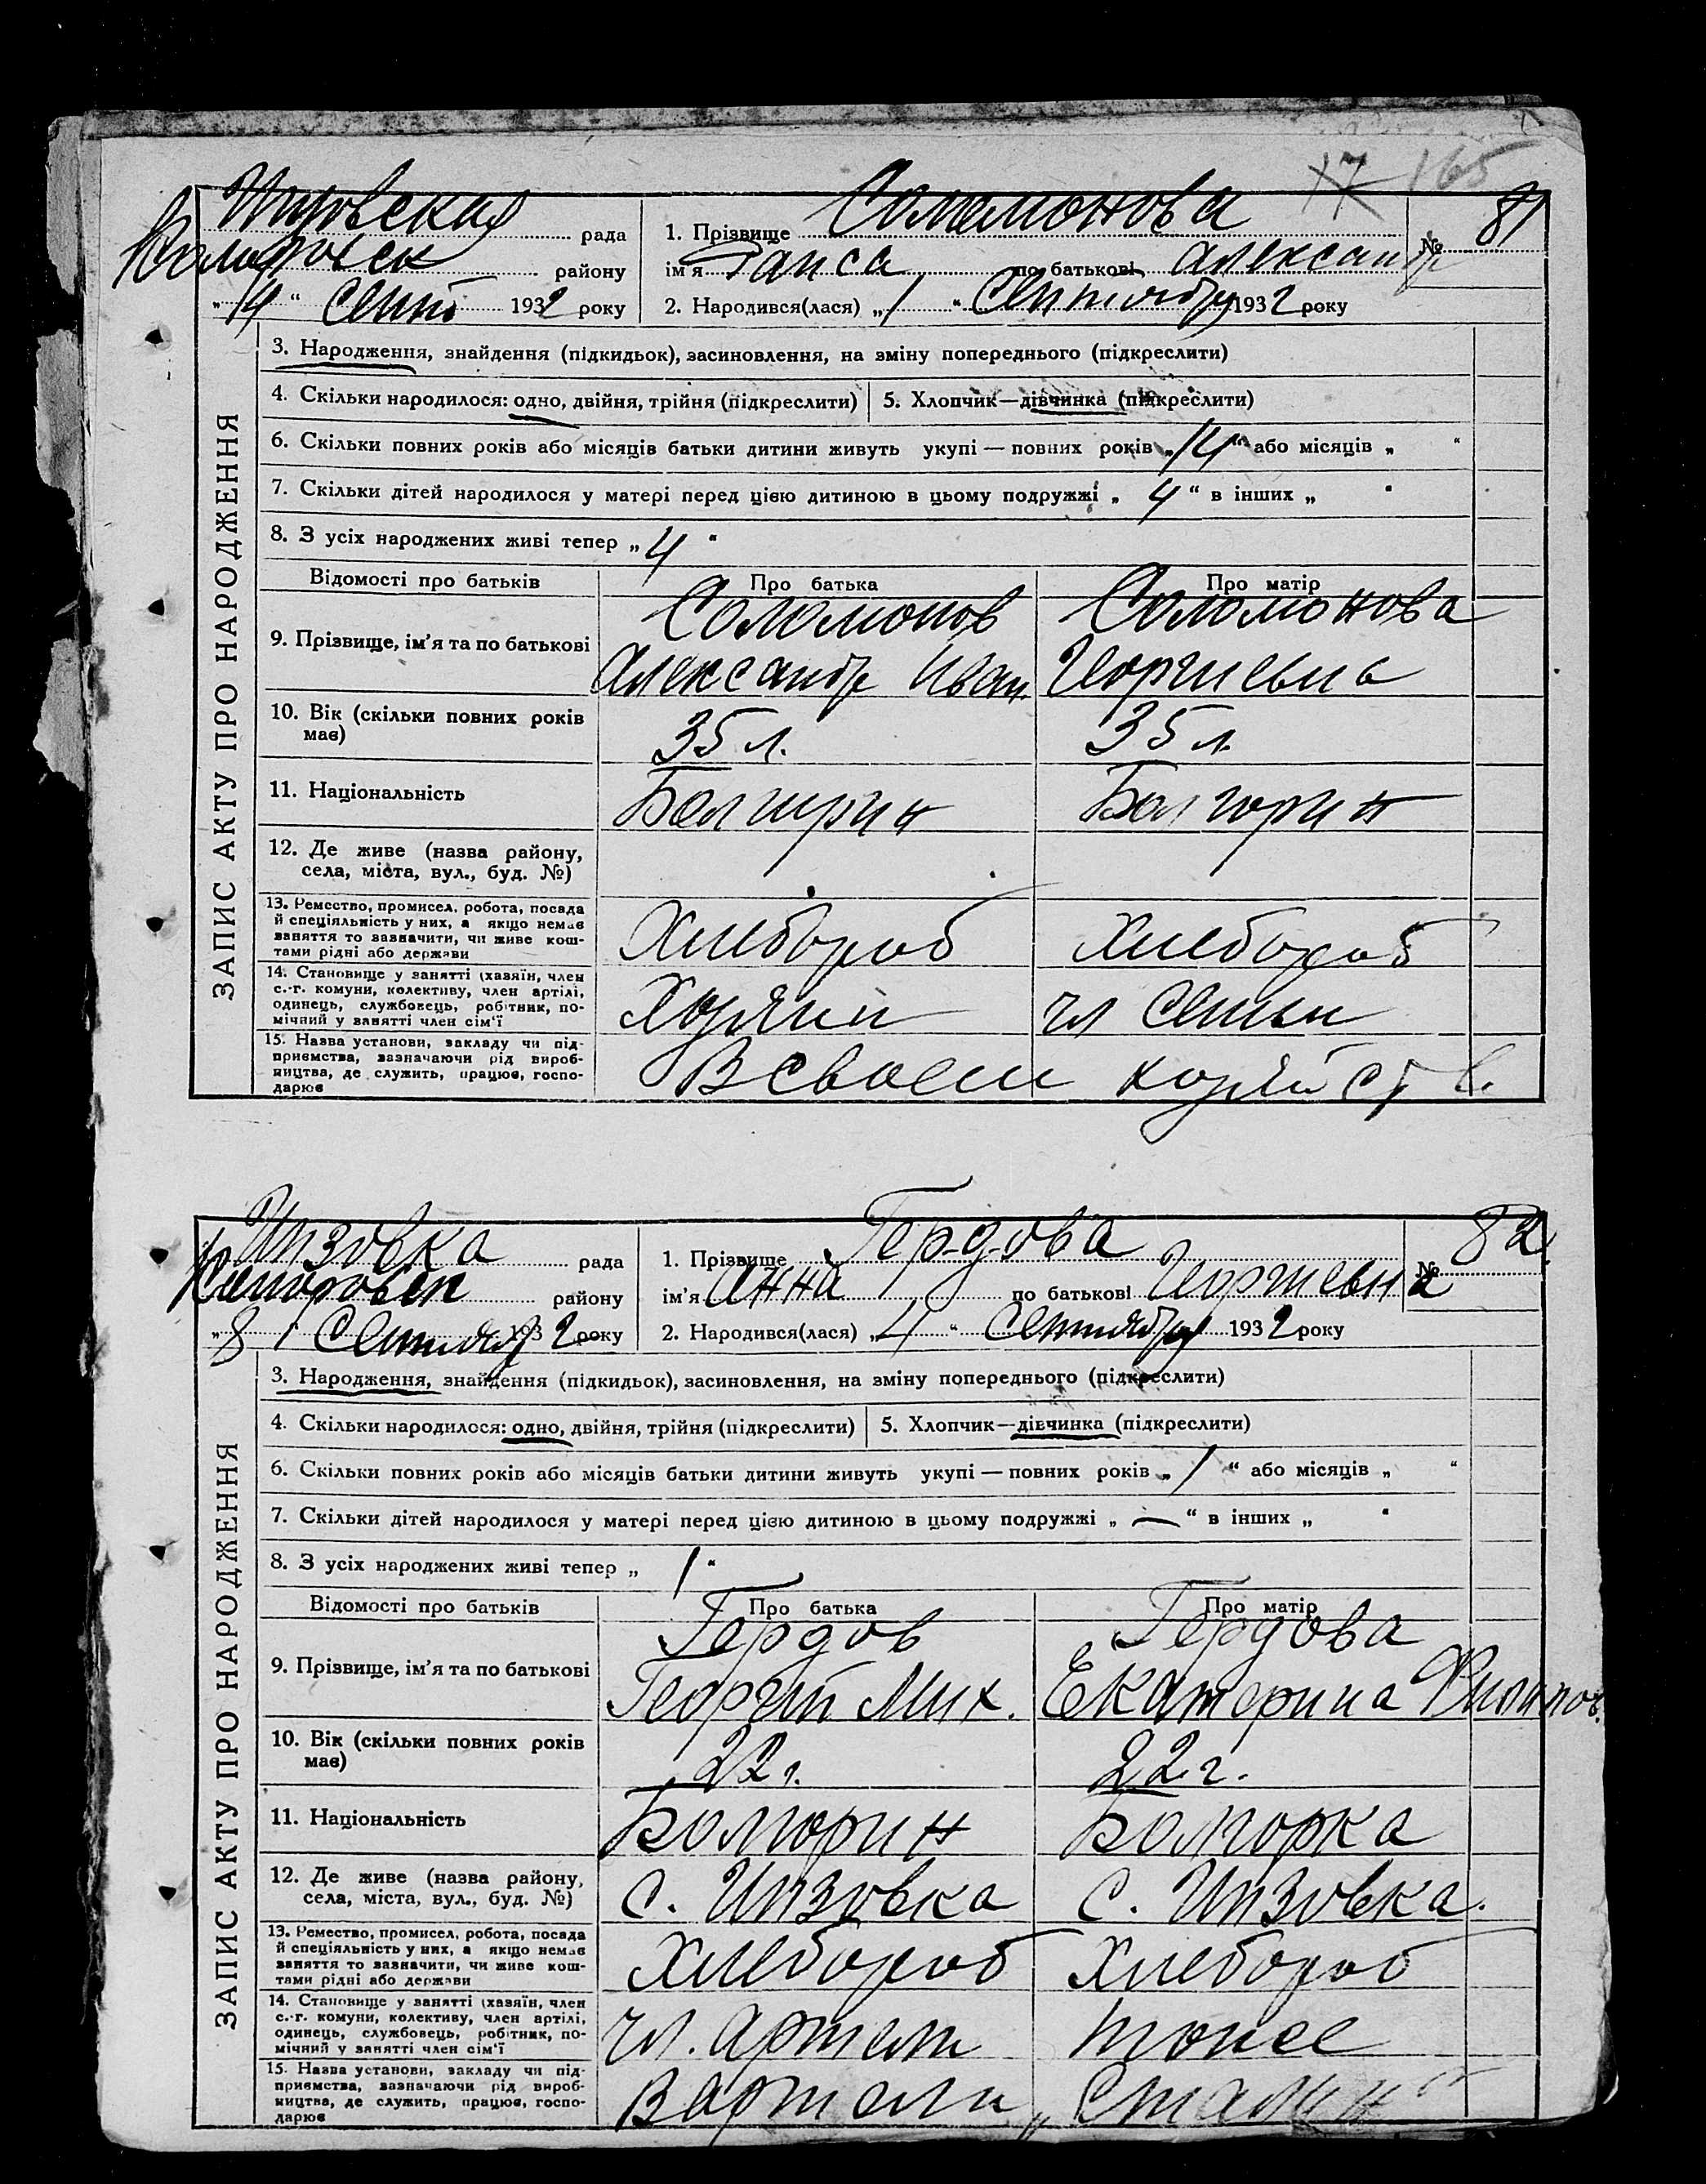 17 165
рада
району
„14“ Сент 1932 року
1. Прізвище Соломонова
ім'я Раиса по батькові Александр
2. Народився(лася) „1“ Сентября 1932 року
№ 81
ЗАПИС АКТУ ПРО НАРОДЖЕННЯ
3. Народження, знайдення (підкидьок), засиновлення, на зміну попереднього (підкреслити)
4. Скільки народилося: одно, двійня, трійня (підкреслити) 5. Хлопчик—дівчинка (підкреслити)
6. Скільки повних років або місяців батьки дитини живуть укупі — повних років „14“ або місяців „ “
7. Скільки дітей народилося у матері перед цією дитиною в цьому подружжі „4“ в інших „ “
8. З усіх народжених живі тепер „4“
Відомості про батьків Про батька Про матір
9. Прізвище, ім'я та по батькові Соломонов Соломонова
Александр Иван. Георгиевна
10. Вік (скільки повних років має) 35 л. 35 л.
11. Національність Болгарин Болгорин
12. Де живе (назва району,
села, міста, вул., буд. №)
13. Ремество, промисел, робота, посада
й спеціяльність у них, а якщо немає
заняття то зазначити, чи живе кош-
тами рідні або держави
Хлебороб Хлебороб
14. Становище у занятті (хазяїн, член
с.-г. комуни, колективу, член артілі,
одинець, службовець, робітник, по-
мічний у занятті член сім'ї
Хозяин чл семьи
15. Назва установи, закладу чи під-
приємства, зазначаючи рід вироб-
ництва, де служить, працює, госпо-
дарює
В своем хозяйств.
Инзовка рада
району
„8“ Сентяб 1932 року
1. Прізвище Гердова
ім'я Анна по батькові Георгиевна
2. Народився(лася) „4“ Сентября 1932 року
№ 82
ЗАПИС АКТУ ПРО НАРОДЖЕННЯ
3. Народження, знайдення (підкидьок), засиновлення, на зміну попереднього (підкреслити)
4. Скільки народилося: одно, двійня, трійня (підкреслити) 5. Хлопчик—дівчинка (підкреслити)
6. Скільки повних років або місяців батьки дитини живуть укупі — повних років „1“ або місяців „ “
7. Скільки дітей народилося у матері перед цією дитиною в цьому подружжі „—“ в інших „ “
8. З усіх народжених живі тепер „1“
Відомості про батьків Про батька Про матір
9. Прізвище, ім'я та по батькові Гердов Гердова
Георгий Мих. Екатерина Филипов.
10. Вік (скільки повних років має) 22 г. 22 г.
11. Національність Болгорин Болгорка
12. Де живе (назва району,
села, міста, вул., буд. №)
с. Инзовка с. Инзовка.
13. Ремество, промисел, робота, посада
й спеціяльність у них, а якщо немає
заняття то зазначити, чи живе кош-
тами рідні або держави
Хлебороб Хлебороб
14. Становище у занятті (хазяїн, член
с.-г. комуни, колективу, член артілі,
одинець, службовець, робітник, по-
мічний у занятті член сім'ї
чл. артели тоже
15. Назва установи, закладу чи під-
приємства, зазначаючи рід вироб-
ництва, де служить, працює, госпо-
дарює
В артели „Сталин“